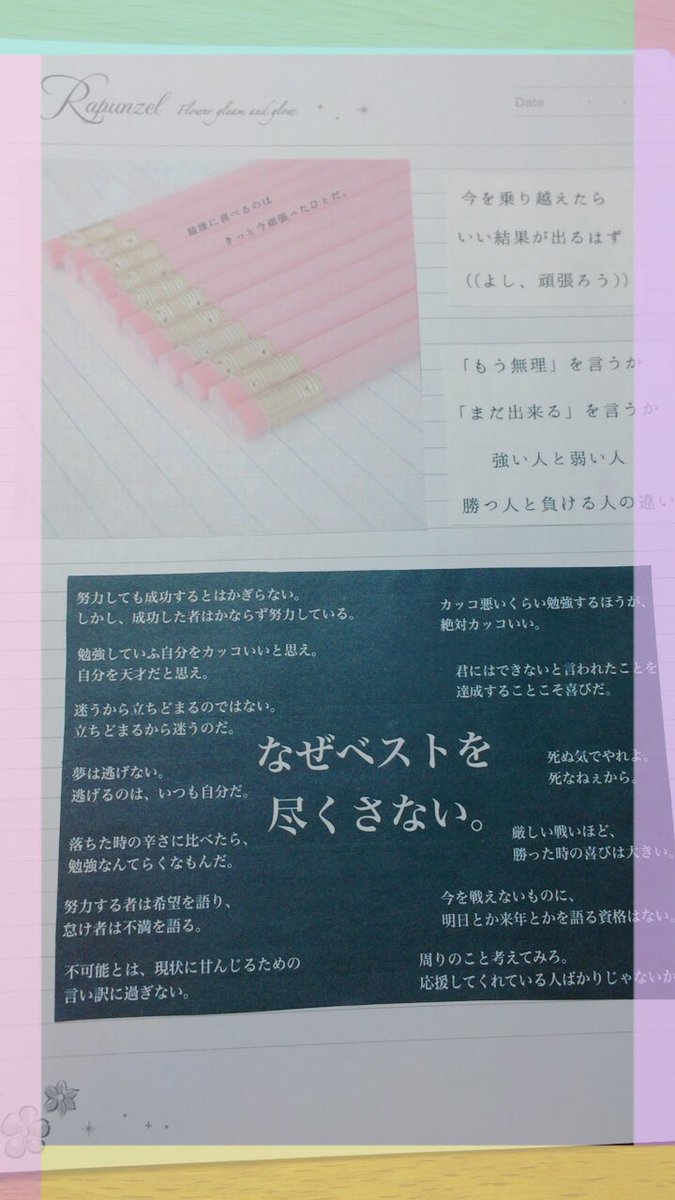 Rapunzel Flower gleam and glow.
Date
最後に喜べるのは
きっと今頑張ったひとだ、
今を乗り越えたら
いい結果が出るはず
((よし、頑張ろう))
「もう無理」を言うか
「まだ出来る」を言うか
強い人と弱い人
勝つ人と負ける人の違い
努力しても成功するとはかぎらない。
しかし、成功した者はかならず努力している。
勉強していふ自分をカッコいいと思え。
自分を天才だと思え。
迷うから立ちどまるのではない。
立ちどまるから迷うのだ。
夢は逃げない。
逃げるのは、いつも自分だ。
落ちた時の辛さに比べたら、
勉強なんてらくなもんだ。
努力する者は希望を語り、
怠け者は不満を語る。
不可能とは、現状に甘んじるための
言い訳に過ぎない。
なぜベストを
尽くさない。
カッコ悪いくらい勉強するほうが、
絶対カッコいい。
君にはできないと言われたことを
達成することこそ喜びだ。
死ぬ気でやれよ。
死なねぇから。
厳しい戦いほど、
勝った時の喜びは大きい。
今を戦えないものに、
明日とか来年とかを語る資格はない。
周りのこと考えてみろ。
応援してくれている人ばかりじゃないか